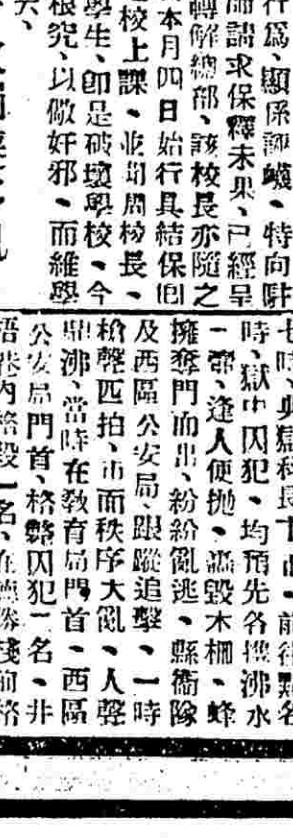 行爲、顯係誣衊、特向駐
請求保釋未果、已經呈
轉解總部、該校長亦隨之
本月四日始行具結保
校上課、周校長、
學生、卽是破壞學校、今
根究、以儆奸邪、而維學
七時、典獄科長 前往點名
時、獄中囚犯、均預先各攜沸水
一壺、逢人便拋、毀木柵、蜂
擁奪門而出、紛紛亂逃、縣衞隊
及西區公安局、跟蹤追擊、一時
槍聲匹拍、市面秩序大亂、人聲
鼎沸、當時在敎育局門首、西區
公安局門首、格斃囚犯二名、井
巷內格殺一名、在 棧前格